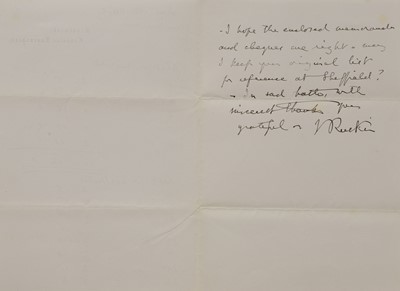 - I hope the enclosed memoranda
and cheques are right - may
I keep your original list
for reference at Sheffield?
- In sad haste, with
sincerest thanks Your
grateful J Ruskin